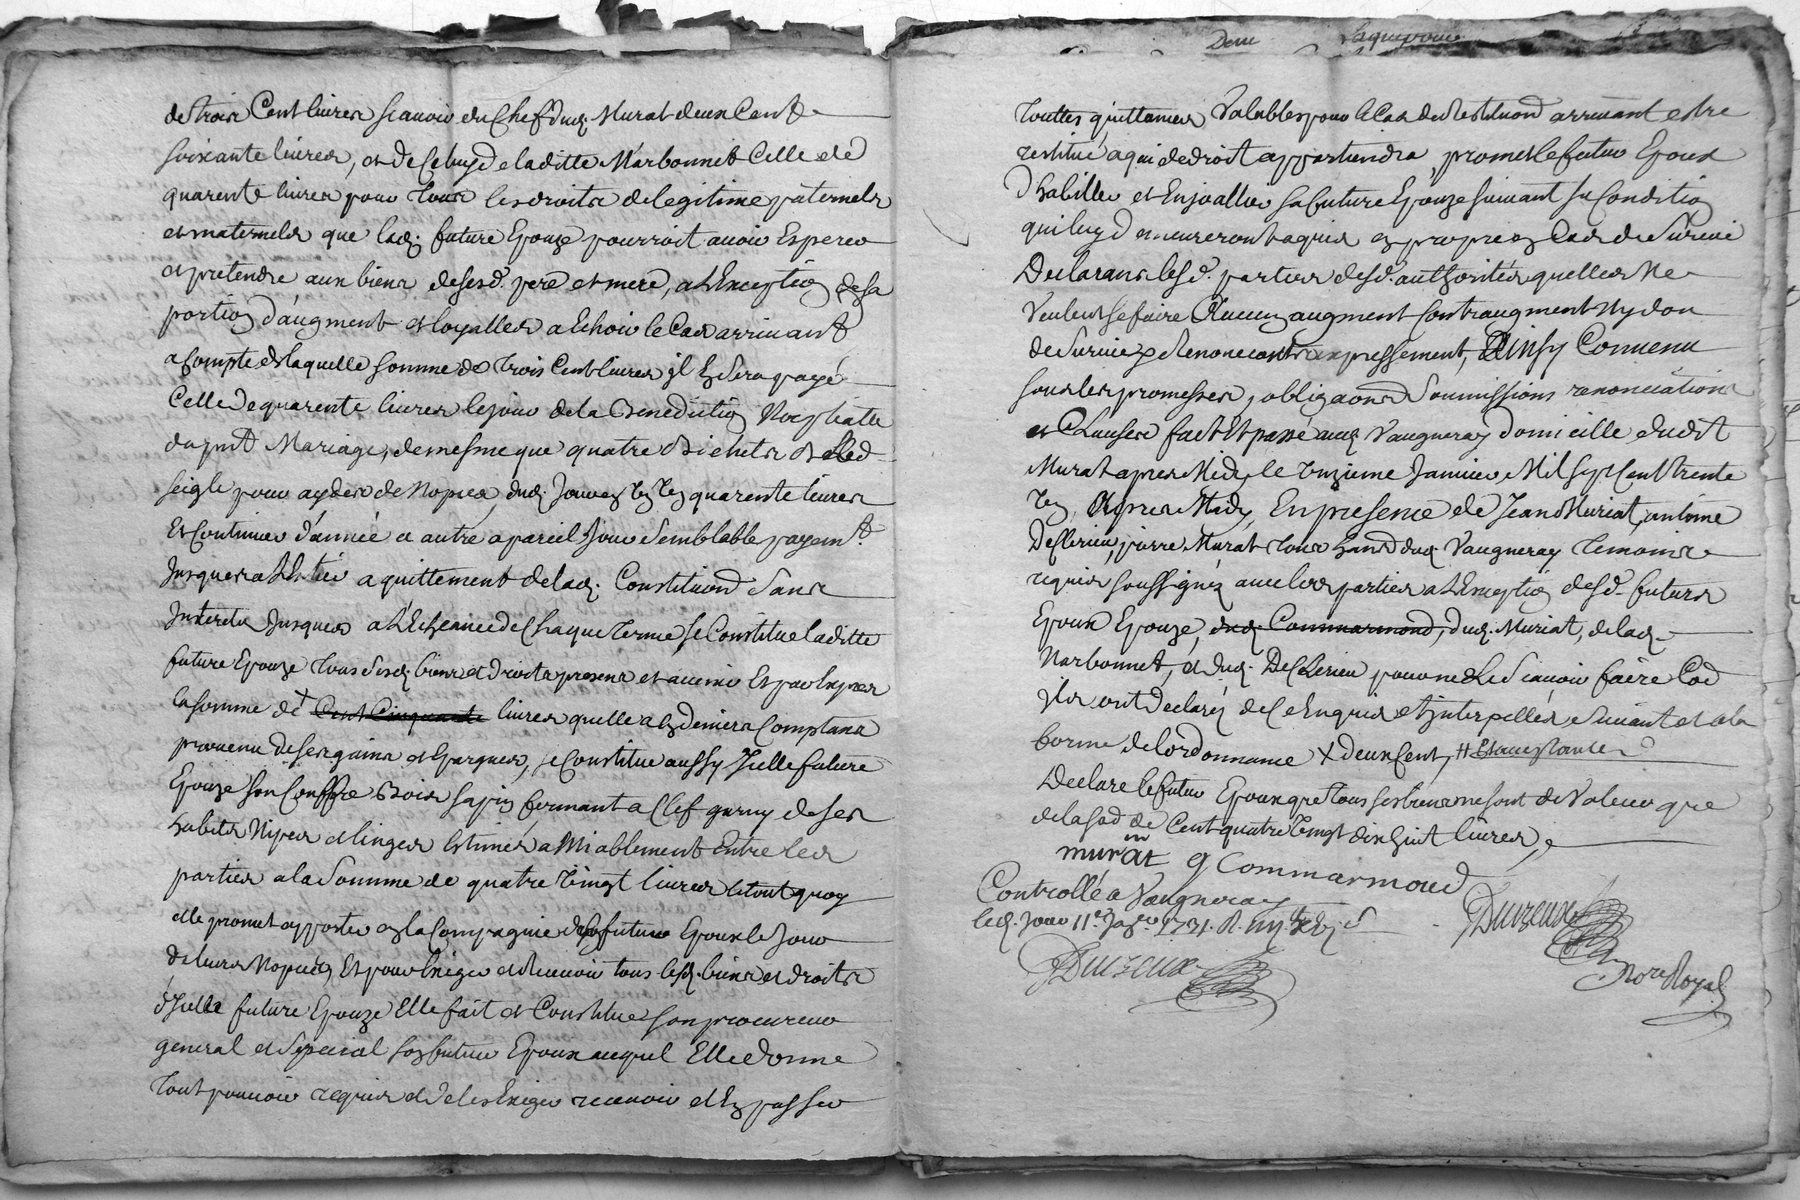 de trois Cent livres scavoir du Chef dud. Murat deux Cent
soixante livres, et de Celuy de laditte Narbonnet Celle de
quarente livres pour Tous les droits de legitime paternels
et maternels que lad. future Epouze pourroit avoir Esperer
et pretendre aux biens de sesd. pere et mere, a L'Exception de sa
portion d'augment et loyalles a Echoir le Cas arrivant
a Compte de laquelle somme de Trois Cent livres jl En sera payé
Celle de quarente livres le jour de la Benediction Nuptialle
du pnt Mariage, de mesme que quatre Bichets de Bled
seigle pour ayder de Nopces, dud. Jour en Un an quarente livres
Et Continuer d'année a autre a pareil Jour Semblable payemt.
Jusques a L'Entier aquittement de lad. Constituōn Sans
Interets Jusques a L'Echeance de Chaque Terme, se Constitue laditte
future Epouze Tous Sesd. biens et droits presens et avenir Et par Exprés
la somme de + Cent Cinquante livres quelle a En deniers Comptans
provenu de ses gains et Epargnes, se Constitue aussy Jcelle future
Epouze son Coffre Bois sapin fermant a Clef garny de ses
habits Nipes et linges Estimés a Miablement Entre les
parties a la Somme de quatre Vingt livres le tout quoy
elle promet apporter en la Compagnie dud. futur Epoux le Jour
de leurs Nopces, Et pour Exiger et Recevoir tous lesd. biens et droits
d'Jcelle future Epouze Elle fait et Constitue son procureur
general et Special son futur Epoux auquel Elle donne
Tout pouvoir requis et de les Exiger recevoir et En passer
Touttes quittances Valables pour le Cas de Restituōn arrivant estre
restitué a qui de droit appartiendra, promet le futur Epoux
d'habiller et Enjoaller sa future Epouze suivant sa Condition
qui luy demeureront aquis et propres En Cas de Survie
Declarans lesd. parties desd. authorités quelles Ne
Veulent se faire Aucun augment Contraugment Ny don
de Survie y Renonceant expressement, Ainsy Convenu
sous les promesses, obligaōns Soumissions renonciations
et Clauses fait Et passé aud. Vaugneray domicille dudit
Murat apres Midy le Unzieme Janvier Mil sept Cent trente
Un, Apres Midy, En presence de Jean Muriat, antoine
DeClerieu, pierre Murat Tous hans dud. Vaugneray Temoins
requis soussignéz avec les parties a L'Exception desd. futurs
Epoux Epouze, dud. Commarmond, dud. Muriat, de lad.
Narbonnet, et dud. DeClerieu pour ne le Scavoir faire Co͞e
jls ont Declaréz de Ce Enquis et Interpellés Suivant et a la
forme de l'ordonnance X deux Cent, # Et acceptante
Declare le futur Epoux que tous ses biens ne sont de Valeur que
de la so͞e de Cent quatre Vingt dix huit livres,
murat g Commarmond
Controllé a Vaugneray
led. Jour 11e. Janer. 1731. R.
Duvzeux
Duvzeux
Nore Royal